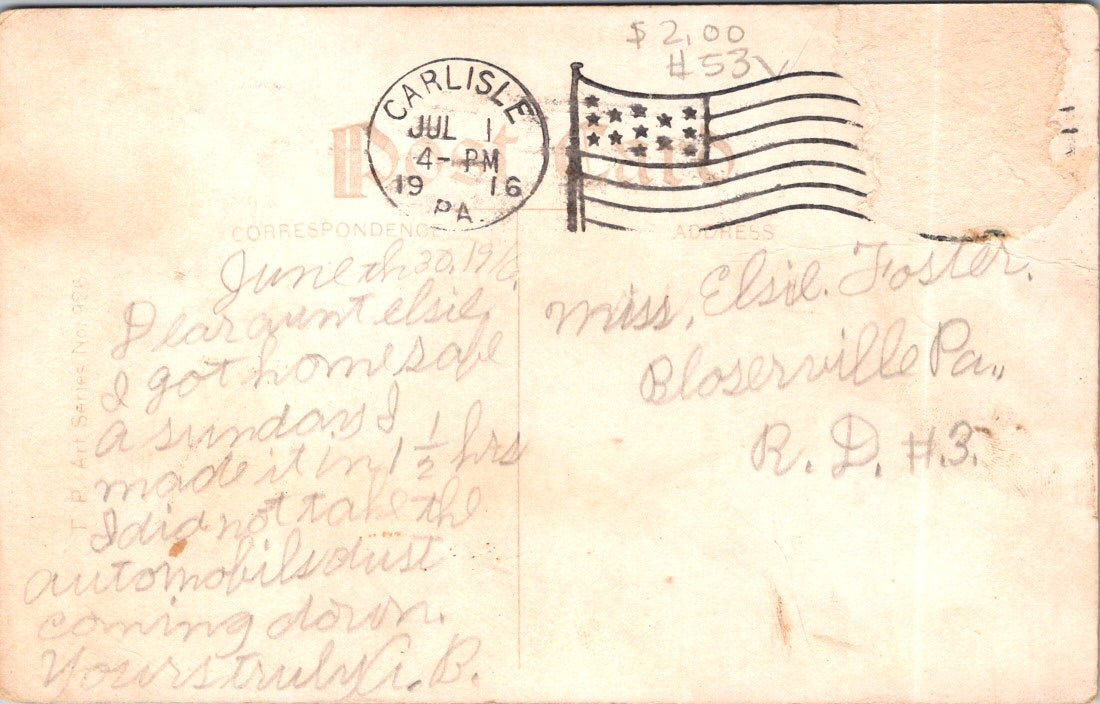 $ 2,00
#53
CARLISLE
JUL 1
4- PM
19 16
PA.
Post Card
CORRESPONDENCE
ADDRESS
June th 30, 191
Dear aunt elsie,
I got home safe
a sunday I
made it in 1 1/2 hrs
I did not take the
automobils dust
coming down.
Yours truly A. B.
Miss, Elsie. Foster.
Bloserville Pa,,
R. D. #.3.
T. P. Art Series No. 926